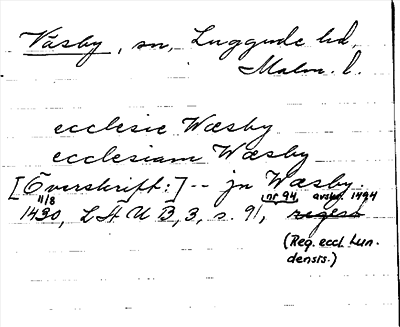 Väsby, sn, Luggude hd,
Malm. l.
ecclesie Wæsby
ecclesiam Wæsby
[Overskrift:] -- jn Wæsby
11/8 nr 94, avskr. 1494
1430, LÄUB, 3, s. 91, regest
(Reg. eccl. Lun.
densis.)